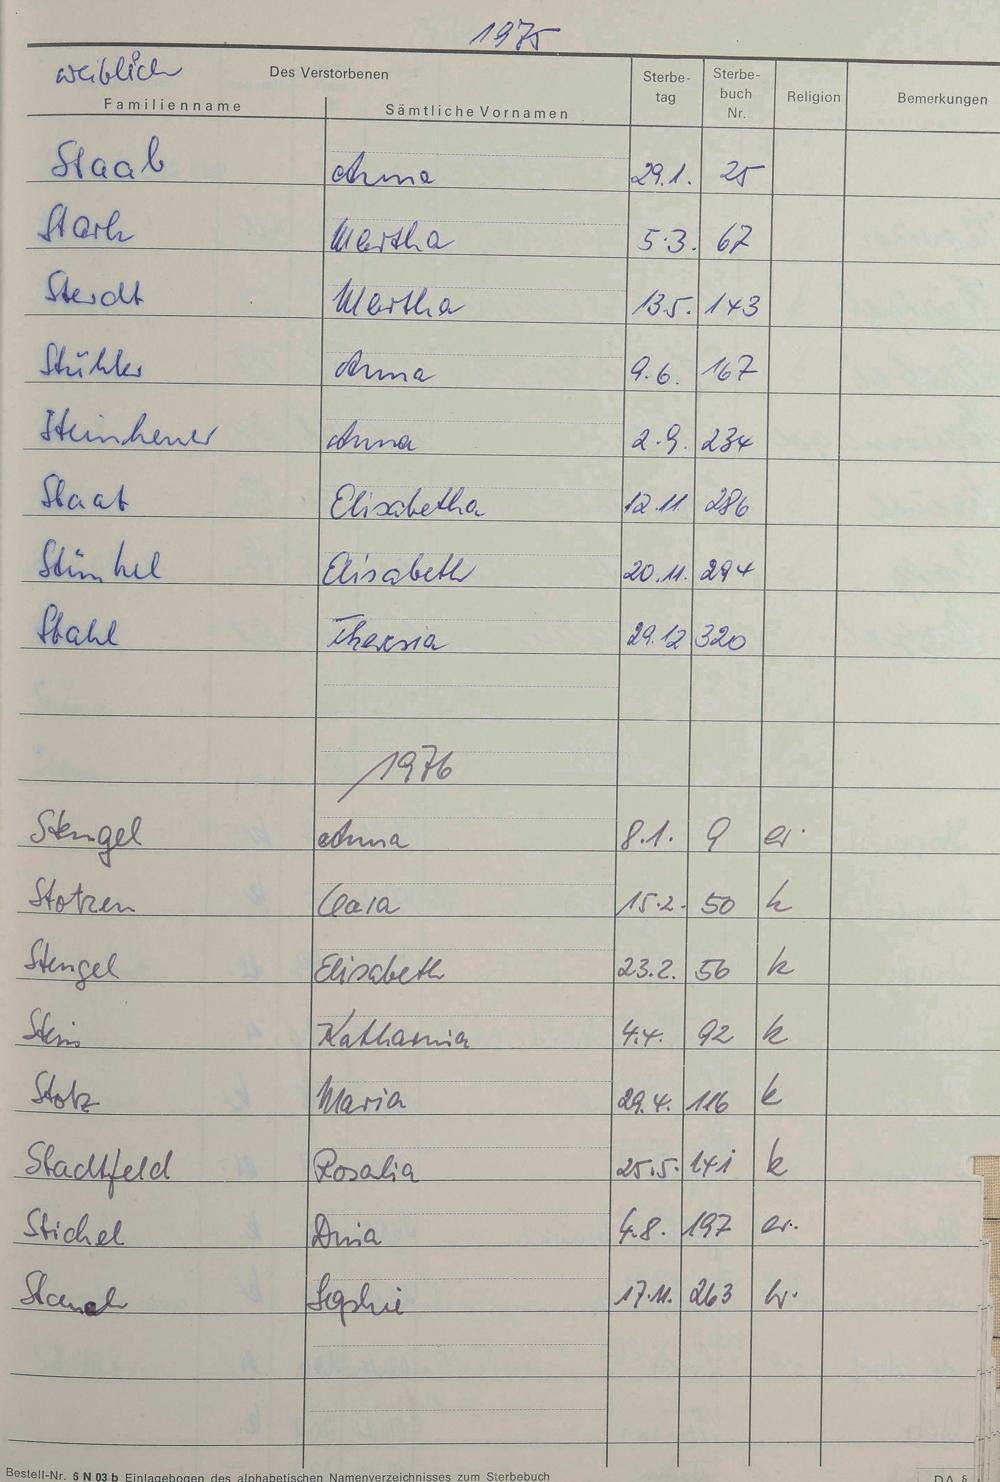 1975
weiblich Des Verstorbenen Sterbe- Sterbe-
tag buch Religion Bemerkungen
Familienname Sämtliche Vornamen Nr.
Staab Anna 29.1. 25
Stark Martha 5.3. 67
Steidt Martha 13.5. 143
Stühler Anna 9.6. 167
Anna 2.9. 234
Staat Elisabetha 12.11. 286
Stünkel Elisabeth 20.11. 294
Stahl Theresia 29.12 320
1976
Stengel Anna 8.1. 9
Stotzen Clara 15.2. 50 k
Stengel Elisabeth 23.2. 56 k
Stein Katharina 4.4. 92 k
Stotz Maria 29.4. 116 k
Stadtfeld Rosalia 25.5. 141 k
Stichel 4.8. 197
Sophie 17.11. 263
Bestell-Nr. S N 03 b Einlagebogen des alphabetischen Namenverzeichnisses zum Sterbebuch